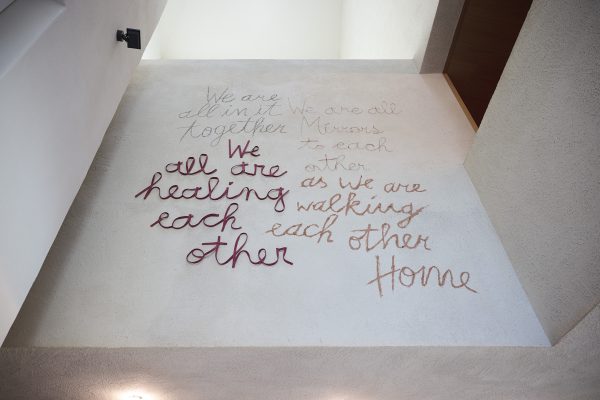 We are
all in it
together
We
all are
healing
each
other
We are all
Merrors
to each
other
as we are
walking
each other
Home